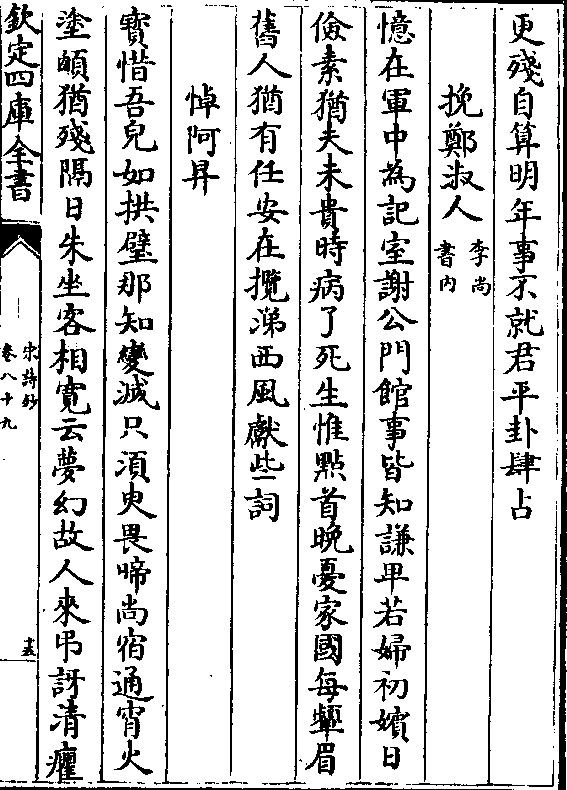 更殘自算明年事不就君平卦肆占
挽鄭淑人李尚書內
憶在軍中為記室謝公門館事皆知謙卑若婦初嬪日
儉素猶夫未貴時病了死生惟㸃首晚憂家國每顰眉
舊人猶有任安在攬涕西風獻些詞
悼阿昇
寳惜吾兒如拱璧那知變滅只湏臾畏啼尚宿通宵火
塗頗猶殘隔日朱坐客相寛云夢幻故人來弔訝清癯
欽定四庫全書
宋詩鈔
卷八十九